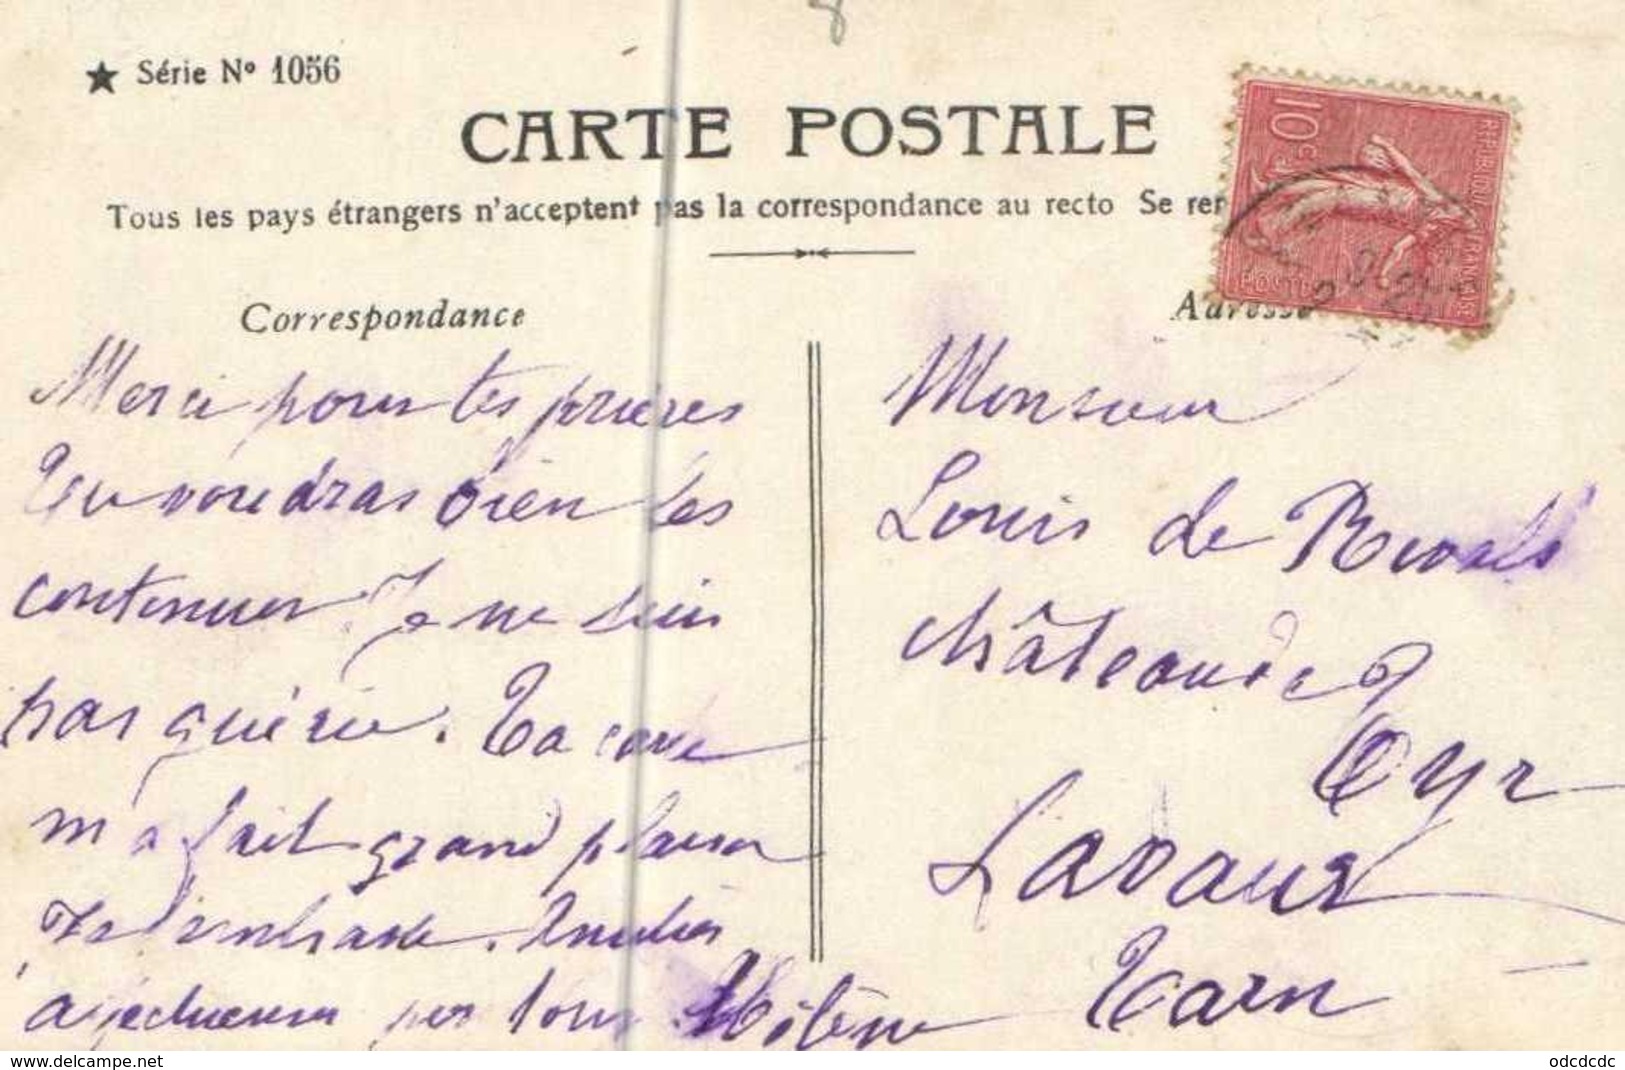 ★ Série Nº 1056
CARTE POSTALE
Tous les pays étrangers n'acceptent pas la correspondance au recto Se ren
Correspondance
Adresse
10
POSTES
Merci pour tes prières
Tu voudras bien les
continuer. Je ne suis
pas guérie. Ta carte
m'a fait grand plaisir
Je t'embrasse.
affectueuses pour tous. Hélène
Monsieur
Louis de Rivals
château de
Cyr
Lavaur
Tarn
https://www.delcampe.net
odcdcdc